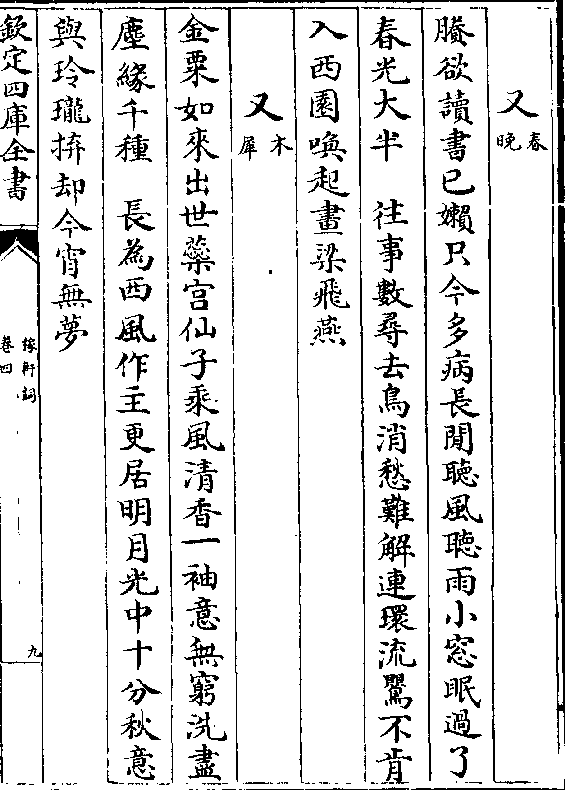 又春晚
賸欲讀書已嬾只今多病長閒聽風聽雨小窓眠過了
春光大半　往事數尋去鳥消愁難解連環流鶯不肯
入西園喚起畫梁飛燕
又木犀
金粟如來出世蘂宫仙子乘風清香一袖意無窮洗盡
塵緣千種　長為西風作主更居明月光中十分秋意
與玲瓏拚却今宵無夢
欽定四庫全書
稼軒詞
卷四
九